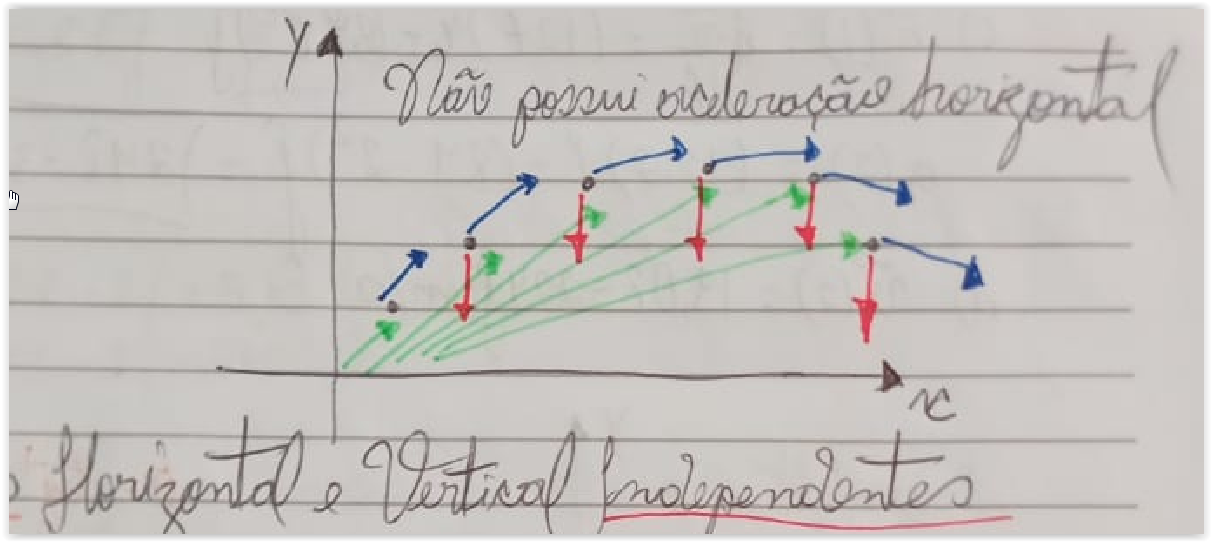 Y
Não possui aceleração horizontal
x
Horizontal e Vertical Independentes